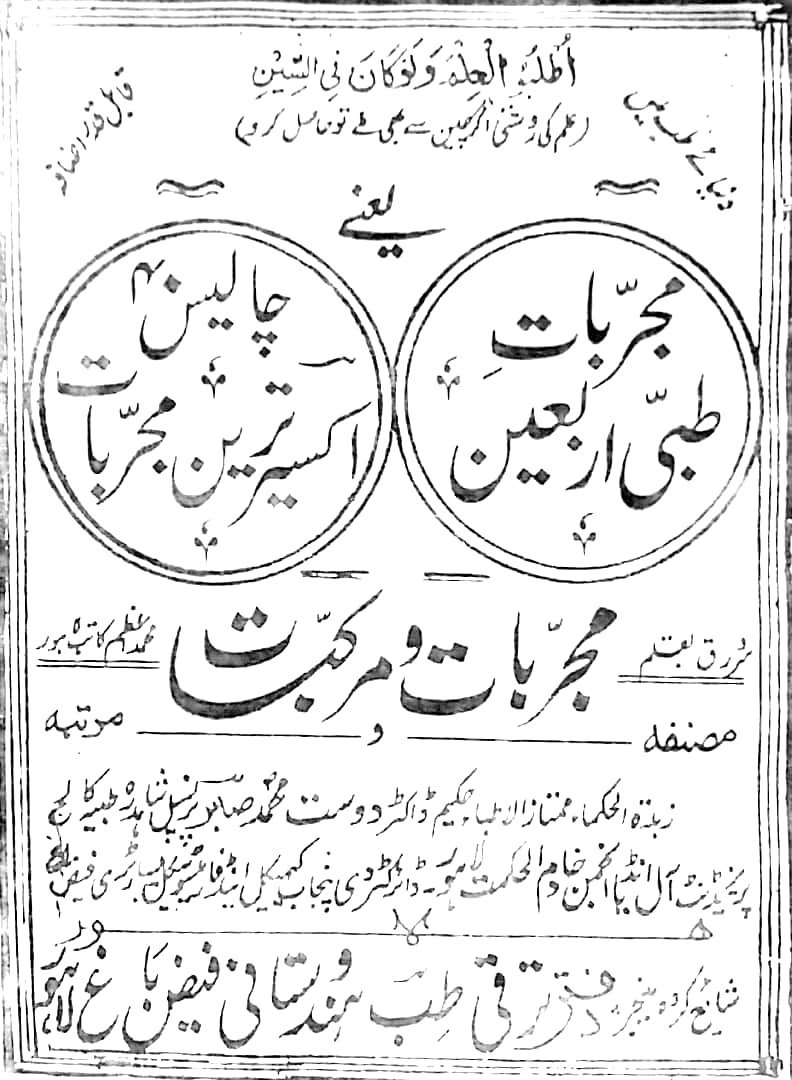 اُطْلُبُوا الْعِلْمَ وَلَوْكَانَ فِی الصِّیْنِ
(علم کی روشنی اگر چین سے بھی ملے تو حاصل کرو)
دنیائے طب میں
قابل قدر اضافہ
یعنے
مجرّباتِ
طبّی اربعین
چالیس ۴۰
اکسیر ترین مجرّبات
مجرّبات و مرکبّات
سرورق بقلم
محمد اعظم کاتب لاہور
مصنفہ و مرتبہ
زبدۃ الحکماء ممتاز الاطباء حکیم ڈاکٹر دوست محمد صابر پرنسپل شاہدرہ طبیہ کالج
پریذیڈنٹ آل انڈیا انجمن خادم الحکمت لاہور۔ ڈائرکٹر دی پنجاب کیمیکل اینڈ فارمیسوٹیکل لیبارٹری فیض باغ
لاہور
شائع کردہ مینجر دفتر ترقی طِب ہندوستانی فیض باغ لاہور